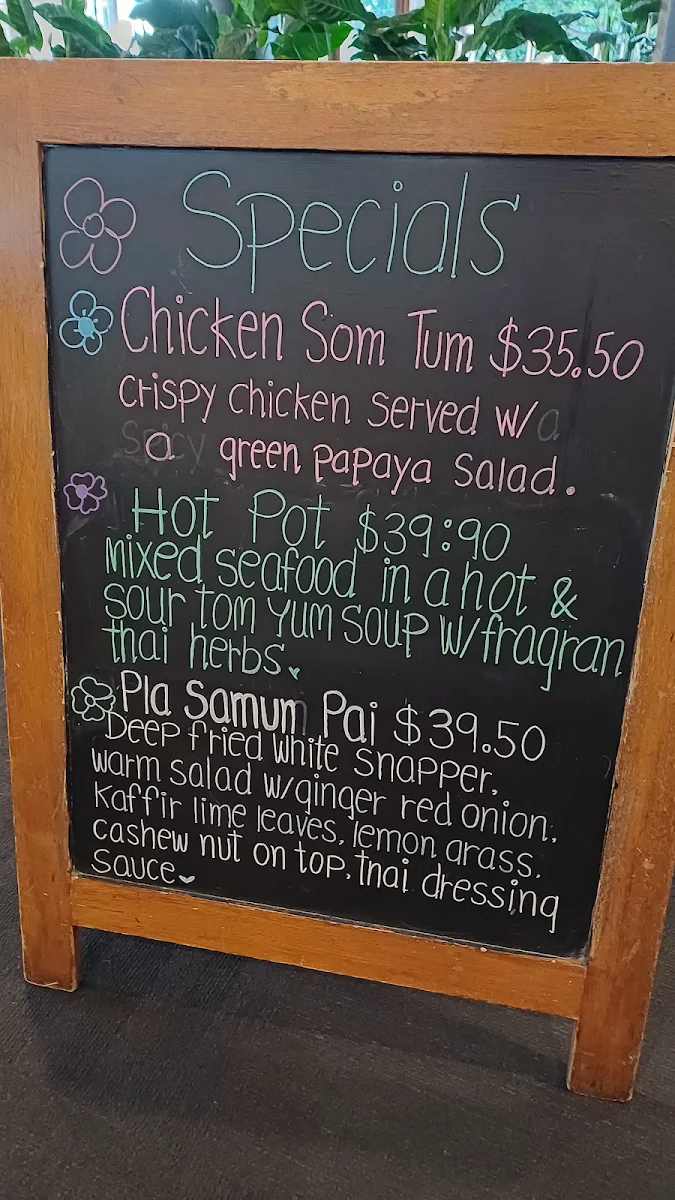 Specials
Chicken Som Tum $35.50
Crispy chicken served w/a
a green papaya salad.
Hot Pot $39:90
mixed seafood in a hot &
sour tom yum soup w/fragran
thai herbs.
Pla Samun Pai $39.50
Deep fried white snapper,
warm salad w/ginger red onion,
Kaffir lime leaves, lemon grass,
cashew nut on top, thai dressing
sauce